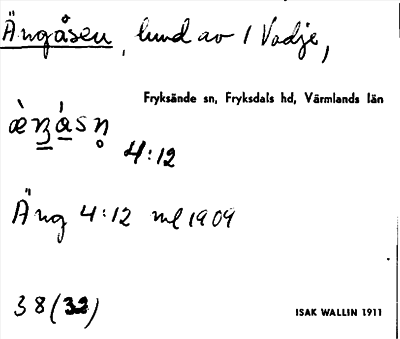 Ängåsen, lund av 1 Vadje,
Fryksände sn, Fryksdals hd, Värmlands län
4:12
Äng 4:12 ml 1909
38 (32)
ISAK WALLIN 1911